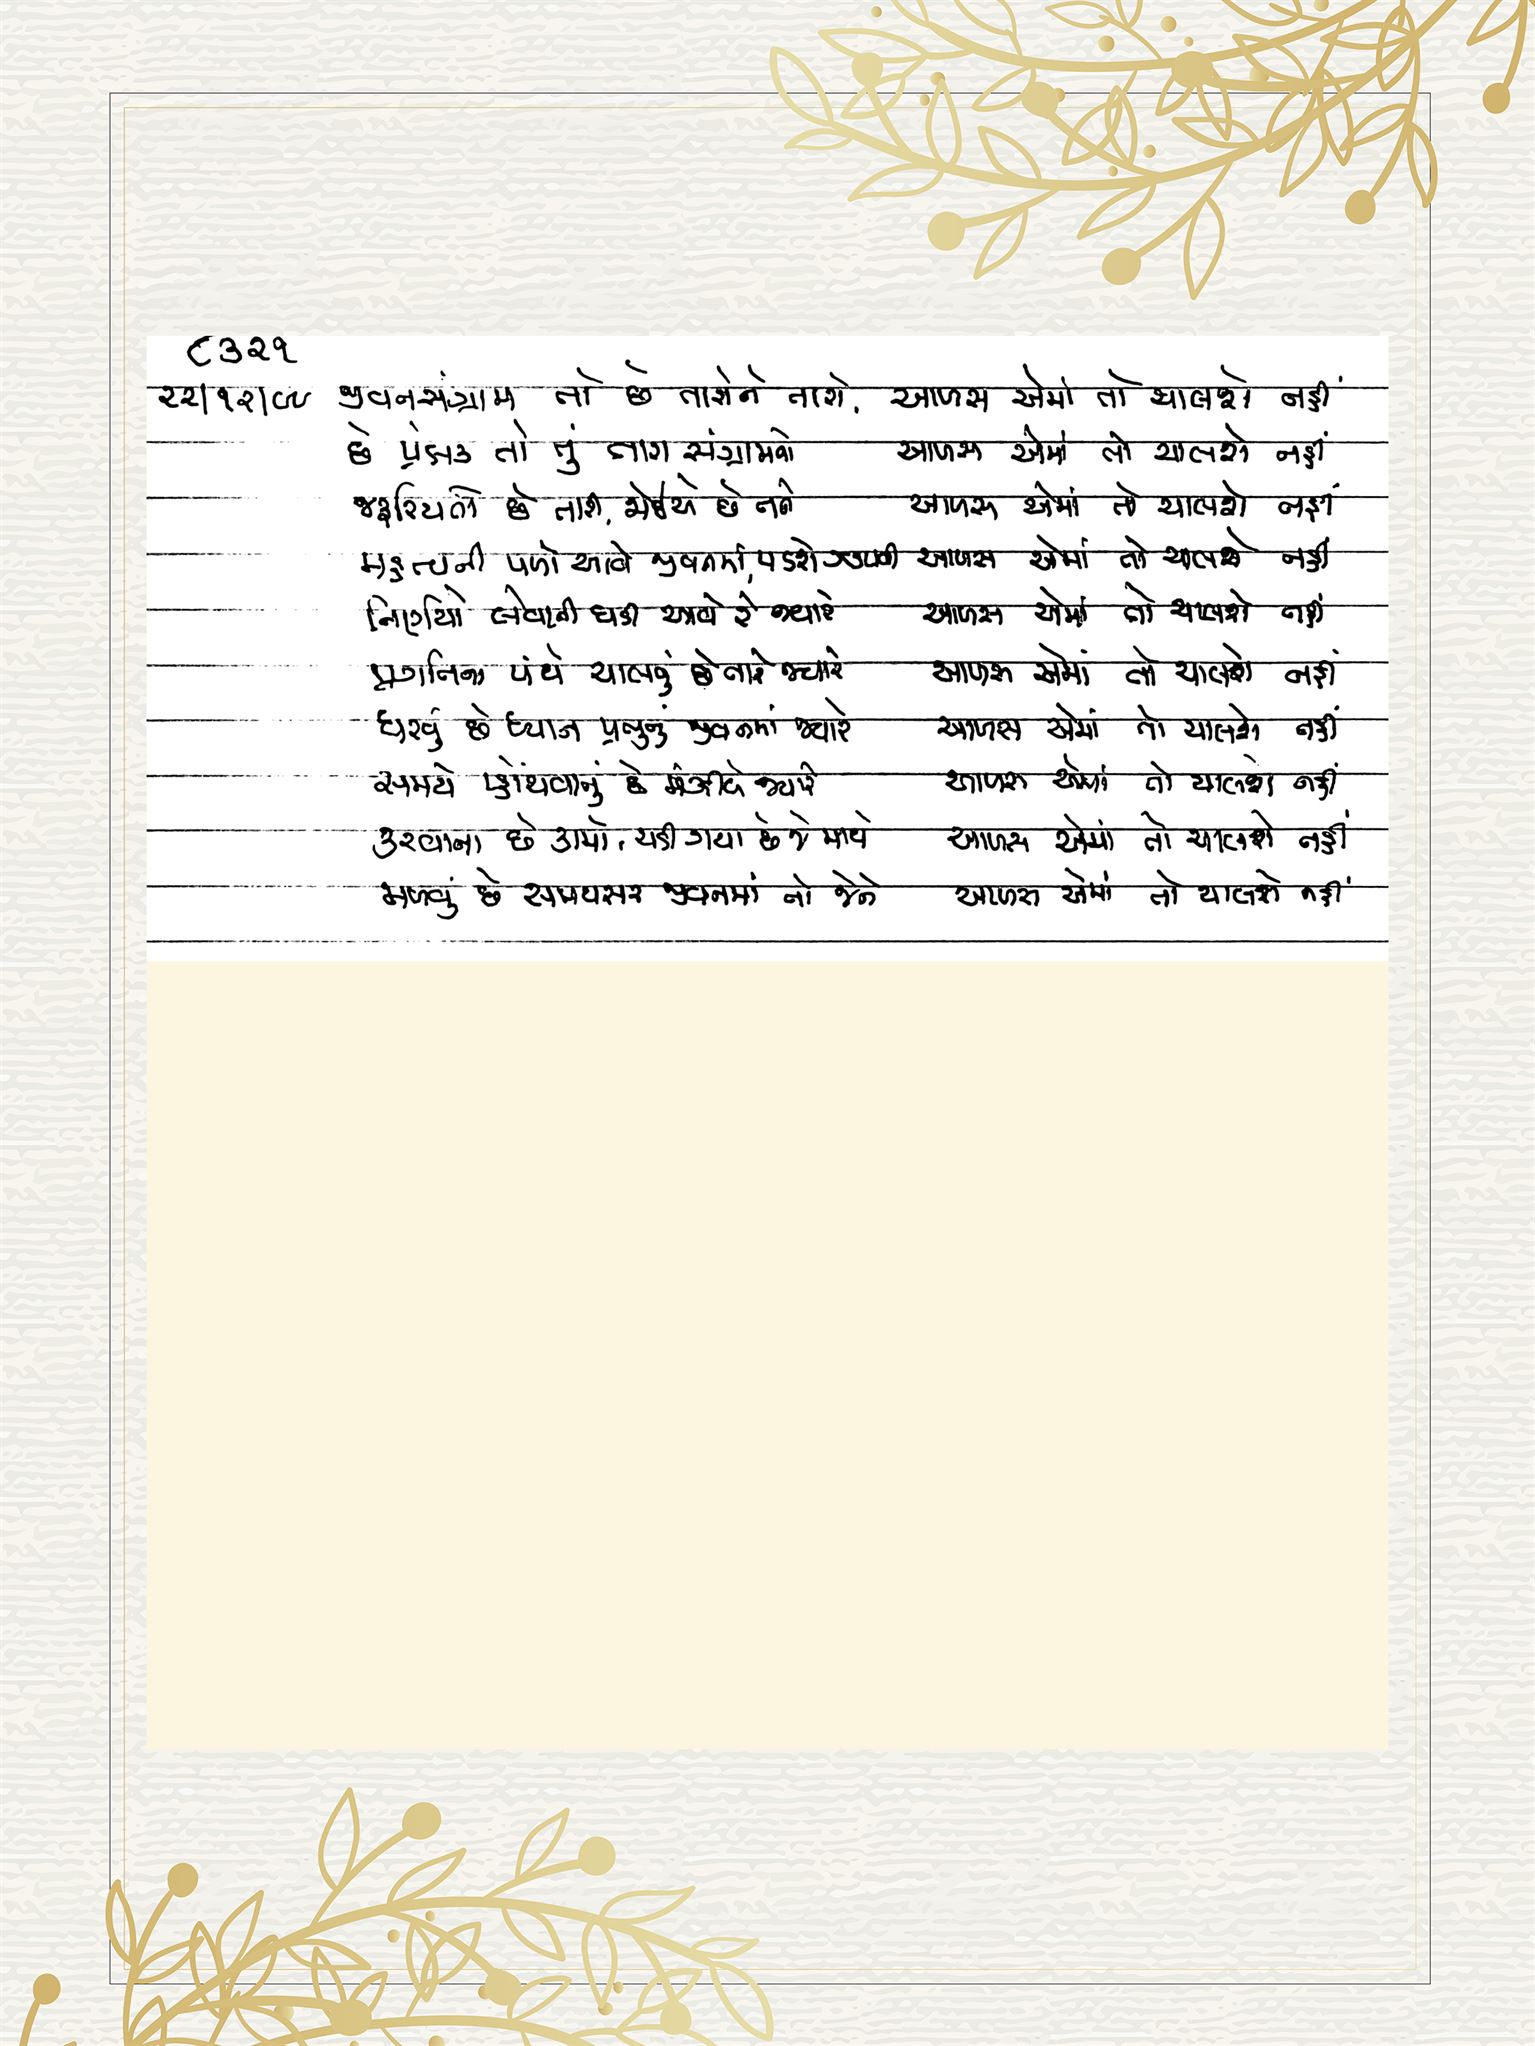 ૮૩૨૧
૨૨/૧૨/૯૯ જીવનસંગ્રામ તો છે તારોને તારો, આળસ એમાં તો ચાલશે નહીં
છે પ્રેક્ષક તો તું તારા સંગ્રામનો આળસ એમાં તો ચાલશે નહીં
જરૂરિયાતો છે તારી, જોઈએ છે તને આળસ એમાં તો ચાલશે નહીં
મહત્ત્વની પળો આવે જીવનમાં, પડશે ઝડપવી આળસ એમાં તો ચાલશે નહીં
નિર્ણયો લેવાની ઘડી આવે રે જ્યારે આળસ એમાં તો ચાલશે નહીં
પ્રગતિના પંથે ચાલવું છે તારે જ્યારે આળસ એમાં તો ચાલશે નહીં
ધરવું છે ધ્યાન પ્રભુનું જીવનમાં જ્યારે આળસ એમાં તો ચાલશે નહીં
સમયે પહોંચવાનું છે મંઝીલે જ્યારે આળસ એમાં તો ચાલશે નહીં
કરવાના છે કામો, ચડી ગયા છે જે માથે આળસ એમાં તો ચાલશે નહીં
મળવું છે સમયસર જીવનમાં તો જેને આળસ એમાં તો ચાલશે નહીં